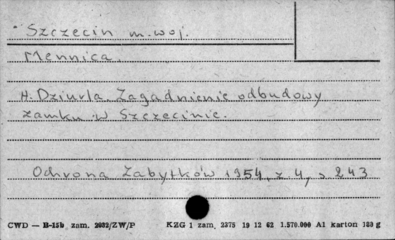 Szczecin m. woj.
Mennica.
H. Dziurla. Zagadnienie odbudowy
zamku w Szczecinie.
Ochrona Zabytków 1954, z 4, s 243
CWD — H-15b, zam. 2082/ZW/P KZG 1 zam. 2375 19 12 62 1.570.000 A1 karton 180 g